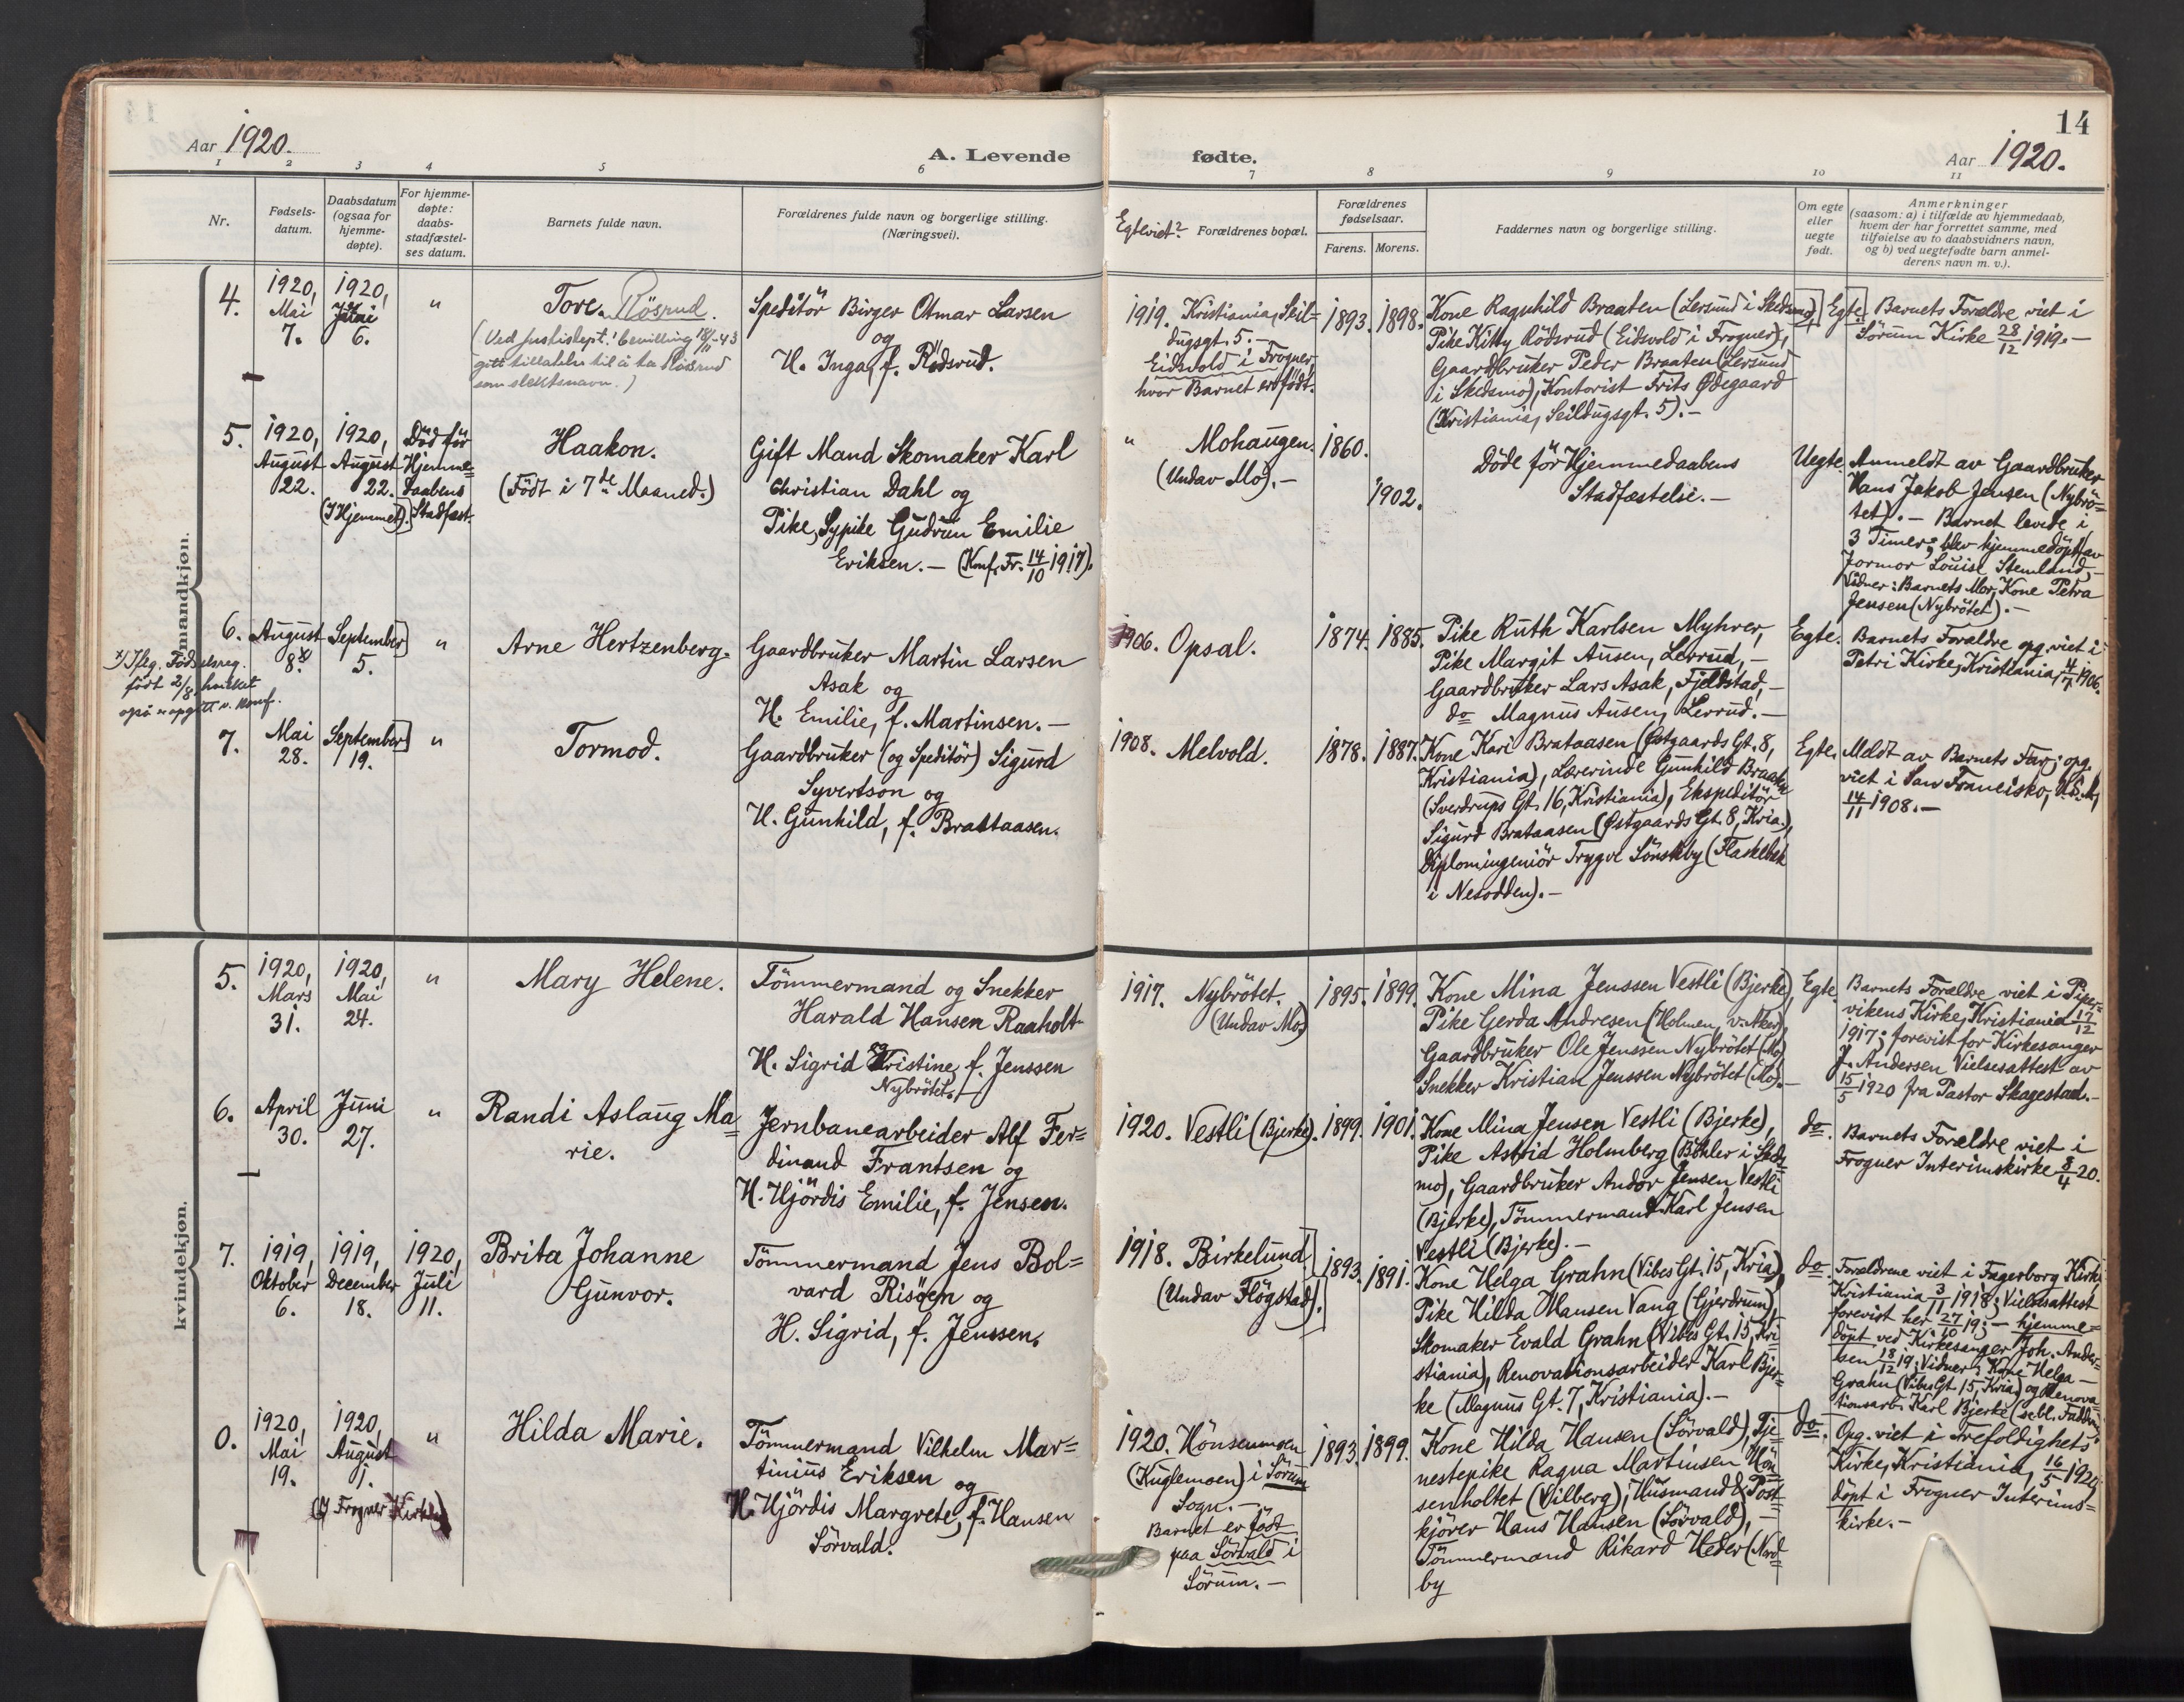 14
Aar 1920.
A. Levende
fødte.
Aar 1920.
1
2
3
4
5
6
7
8
9
10
11
Nr.
Fødsels-
datum.
Daabsdatum
(ogsaa for
hjemme-
døpte).
For hjemme-
døpte:
daabs-
stadfæstel-
ses datum.
Barnets fulde navn.
Forældrenes fulde navn og borgerlige stilling.
(Næringsvei).
Egteviet?
Forældrenes bopæl.
Forældrenes
fødselsaar.
Farens.
Morens.
Faddernes navn og borgerlige stilling.
Om egte
eller
uegte
født.
Anmerkninger
(saasom: a) i tilfælde av hjemmedaab,
hvem der har forrettet samme, med
tilføielse av to daabsvidners navn,
og b) ved uegtefødte barn anmel-
derens navn m. v.).
mandkjøn.
4.
1920,
Mai
7.
1920,
6.
"
Tore. Rösrud.
(Ved justisdept.' bevilling 18/11-43
gitt tillatelse til å ta Rösrud
som slektsnavn.)
Speditör Birger Otmar Larsen
og
H. Inga, f. Rödsrud.
1919. Kristiania, Seil-
dugsgt. 5.—
Eidsvold i Frogner,
hvor Barnet er födt.
1893.
1898.
Kone Ragnhild Braaten (Lersund i Skedsmo),
Pike Kitty Rödsrud (Eidsvold i Frogner),
Gaardbruker Peder Braaten (Lersund
i Skedsmo), Kontorist Frits Ødegaard
(Kristiania, Seildugsgt. 5).—
Egte.
Barnets Forældre viet i
Sörum Kirke 28/12 1919.—
5.
1920,
August
22.
1920,
August
22.
(I Hjemmet).
Död för
Hjemme-
daabens
Stadfæst.
Haakon.
(Födt i 7de Maaned.)
Gift Mand Skomaker Karl
Christian Dahl og
Pike, Sypike Gudrun Emilie
Eriksen.— (Konf. Fr. 14/10 1917).
"
Mohaugen.
(Undav Mo).—
1860.
1902.
Döde för Hjemmedaabens
Stadfæstelse.—
Uegte.
Anmeldt av Gaardbruker
Hans Jakob Jensen (Nybrö=
tet).— Barnet levede i
3 Timer; blev hjemmedöpt av
Jormor Louise Stemland,—
Vidner: Barnets Mor, Kone Petra
Jensen (Nybrötet).—
6.
August
8.x)
September
5.
"
Arne Hertzenberg.
Gaardbruker Martin Larsen
Asak og
H. Emilie, f. Martinsen.—
1906. Opsal.
1874.
1885.
Pike Ruth Karlsen Myhrer,
Pike Margit Ausen, Lerrud,—
Gaardbruker Lars Asak, Fjeldstad,—
do Magnus Ausen, Lerrud.—
Egte.
Barnets Forældre opg. viet i
Petri Kirke, Kristiania, 4/7 1906.
x) Iflg. Fødselsreg.
født 2/8, hvilket
også er opgitt v. Konf.
7.
Mai
28.
September
19.
"
Tormod.
Gaardbruker (og Speditör) Sigurd
Syvertson og
H. Gunhild, f. Brattaasen.
1908. Melvold.
1878.
1887.
Kone Kari Brataasen (Østgaards Gt. 8,
Kristiania), Lærerinde Gunhild Braaten
(Sverdrups Gt. 16, Kristiania), Ekspeditör
Sigurd Brataasen (Østgaards Gt. 8, Kria.),
Diplomingeniör Trygve Sönsteby (Flaskebek
i Nesodden).—
Egte.
Meldt av Barnets Far; opg.
viet i San Francisko, U.S.A,
14/11 1908.—
kvindekjøn.
5.
1920,
Mars
31.
1920,
Mai
24.
"
Mary Helene.
Tömmermand og Snekker
Harald Hansen Raaholt
og
H. Sigrid Kristine, f. Jenssen
Nybrötet.—
1917. Nybrötet.
(Undav Mo)
1895.
1899.
Kone Mina Jenssen Vestli (Bjerke),
Pike Gerda Andresen (Holmen, v. Aker),
Gaardbruker Ole Jenssen Nybrötet (Mo)
Snekker Kristian Jenssen Nybrötet (Mo).—
Egte.
Barnets Forældre viet i Piper-
vikens Kirke, Kristiania 17/12
1917; forevist for Kirkesanger
J. Andersen Vielsesattest av
15/5 1920 fra Pastor Skagestad.—
6.
April
30.
Juni
27.
"
Randi Aslaug Ma=
rie.
Jernbanearbeider Alf Fer=
dinand Frantsen og
H. Hjördis Emilie, f. Jensen.
1920. Vestli (Bjerke).
1899.
1901.
Kone Mina Jensen Vestli (Bjerke),
Pike Astrid Holmberg (Böhler i Skeds=
mo), Gaardbruker Andor Jensen Vestli
(Bjerke), Tömmermand Karl Jensen
Vestli (Bjerke).—
do.
Barnets Forældre viet i
Frogner Interimskirke 8/4 20.
7.
1919,
Oktober
6.
1919,
December
18.
1920,
Juli
11.
Brita Johanne
Gunvor.
Tömmermand Jens Bol=
vard Risöen og
H. Sigrid, f. Jenssen.
1918. Birkelund
(Undav Flögstad).
1893.
1891.
Kone Helga Grahn (Vibes Gt. 15, Kria),
Pike Hilda Hansen Vang (Gjerdrum),
Skomaker Evald Grahn (Vibes Gt. 15, Kri=
stiania), Renovationsarbeider Karl Bjer=
ke (Magnus Gt. 7, Kristiania).—
do.
Forældrene viet i Fagerborg Kirke
Kristiania 3/11 1918; Vielsesattest
forevist her 27/10 19;— hjemme=
döpt ved Kirkesanger Joh. Ander=
sen 18/12 19; Vidner: Kone Helga
Grahn (Vibes Gt. 15, Kria) og Renova=
tionsarb. Karl Bjerke (se bl. Faddrene)
0.
1920,
Mai
19.
1920,
August
1.
(I Frogner Kirke)
"
Hilda Marie.
Tömmermand Vilhelm Mar=
tinius Eriksen og
H. Hjördis Margrete, f. Hansen
Sörvald.
1920. Hönsenmoen
(Kuglemoen) i Sörum
Sogn.—
Barnet er födt
paa Sörvald i
Sörum.—
1893.
1899.
Kone Hilda Hansen (Sörvald), Tje=
nestepike Ragna Martinsen Hön=
senholtet (Vilberg), Husmand & Post=
kjörer Hans Hansen (Sörvald),—
Tömmermand Rikard Heder (Nord=
by
do.
Opg. viet i Trefoldighets
Kirke, Kristiania, 16/5 1920
döpt i Frogner Interims=
kirke.—